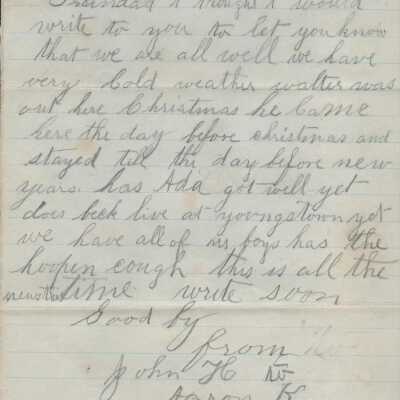 I thought I would
write to you to let you know
that we are all well we have
very Cold weather walter was
out here Christmas he Came
here the day before christmas and
stayed till the day before new
years. has Ada got well yet
does beck live at youngstown yet
we have all of us boys has the
hoopen cough this is all the
news this time write soon
Good by
from
John H to
Aaron K